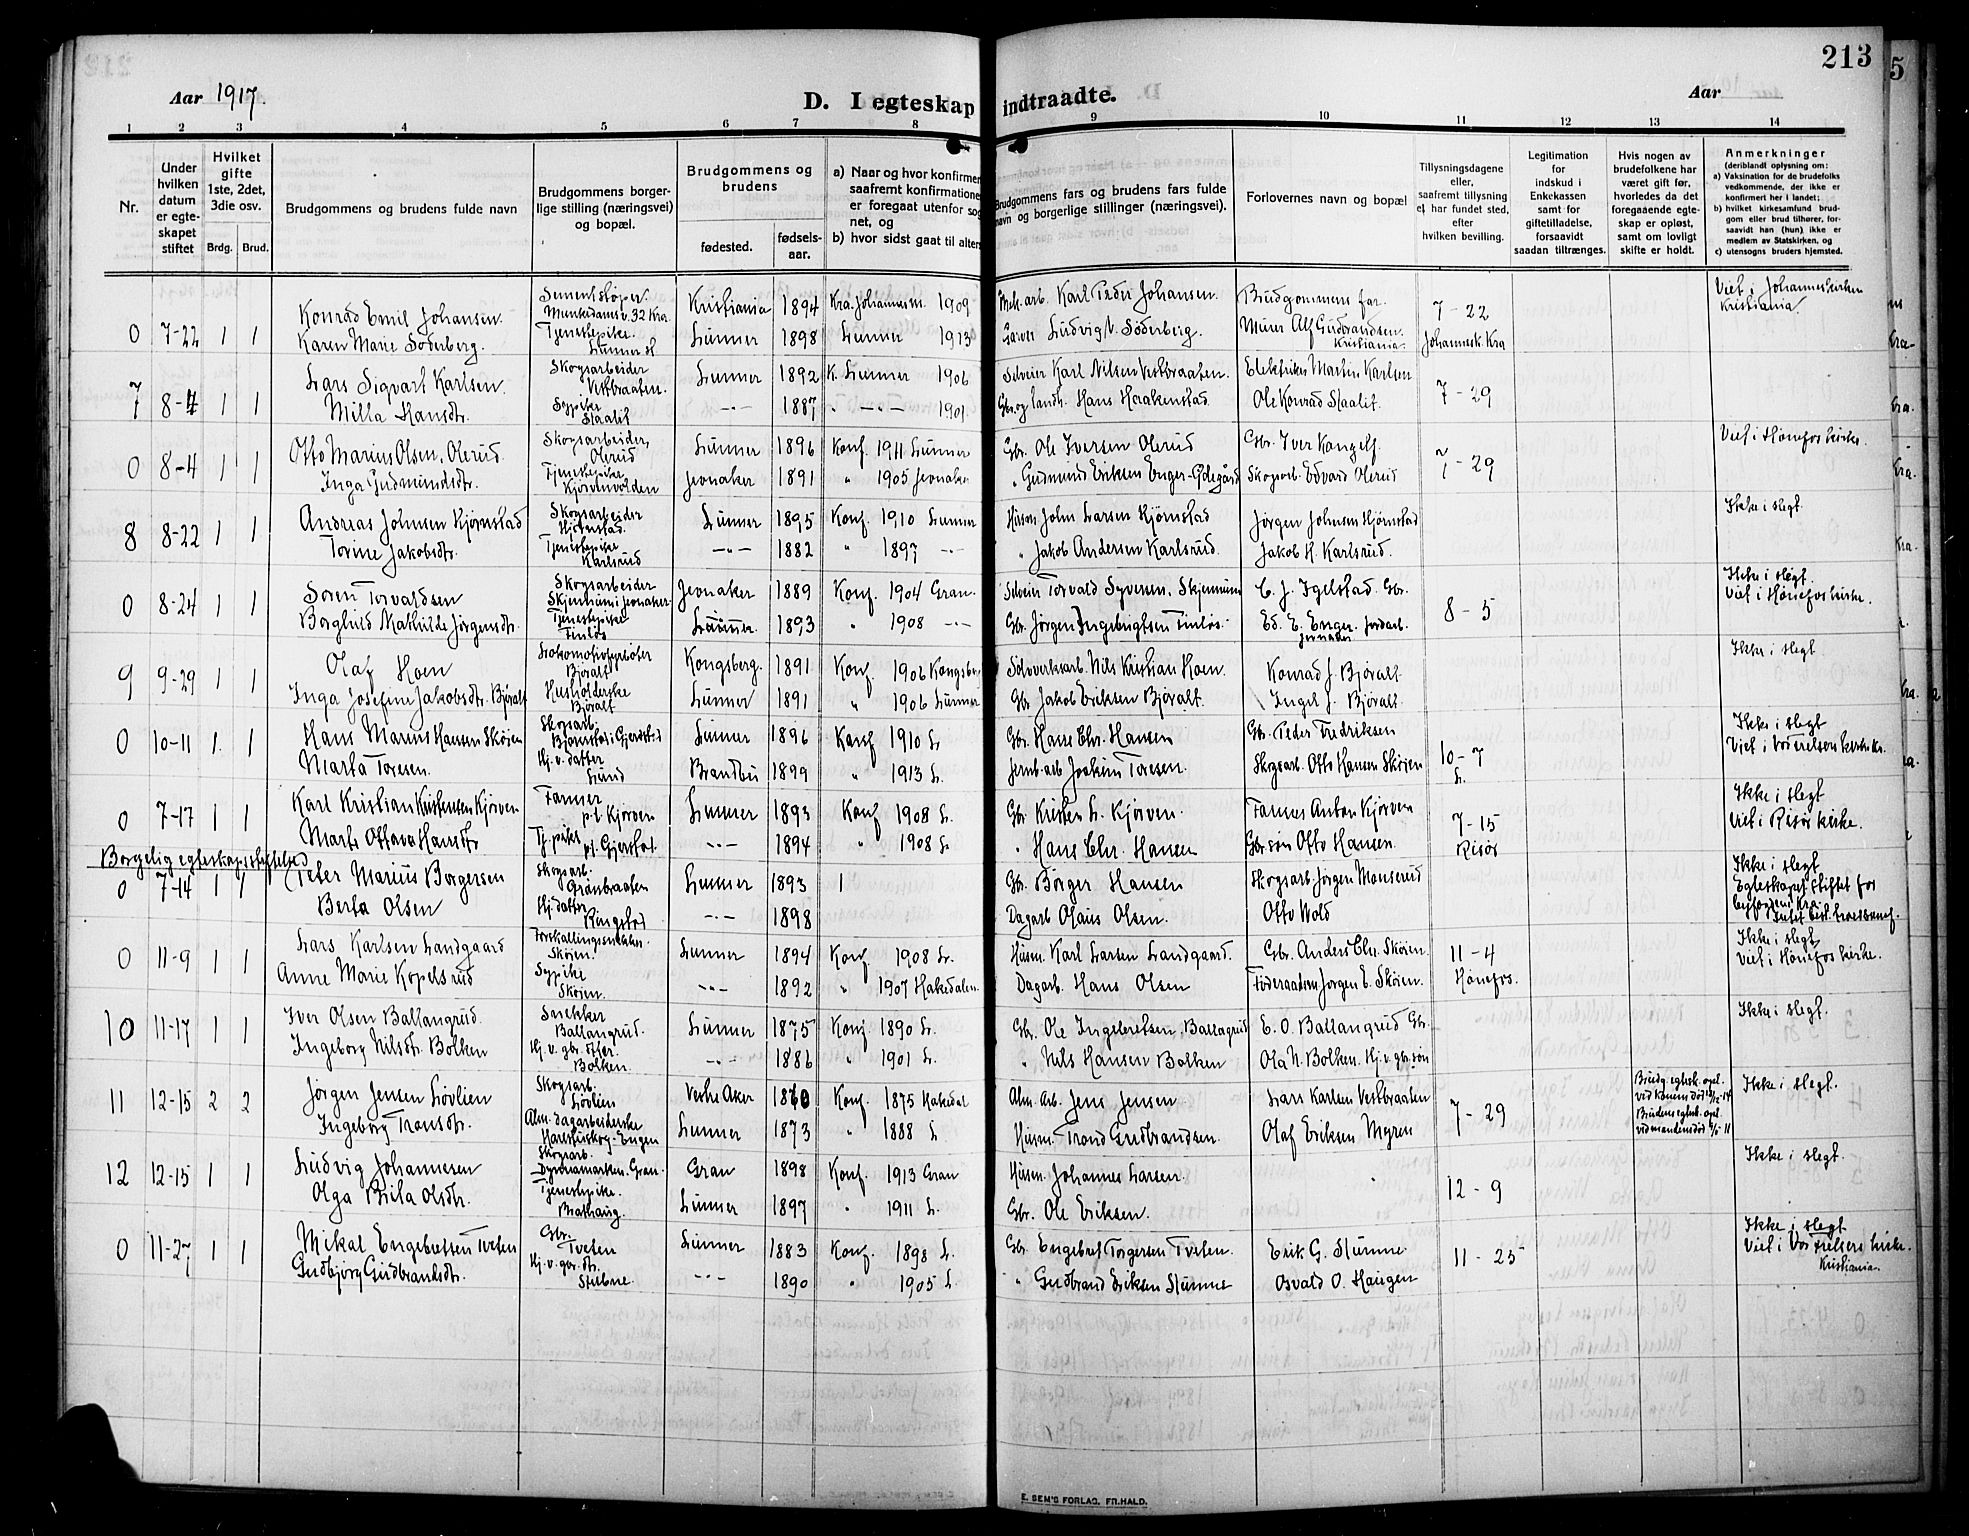 213
Aar 1917.
D. I egteskap indtraadte.
Aar
1 2 3 4 5 6 7 8 9 10 11 12 13 14
Nr.
Under hvilken datum er egteskapet stiftet
Hvilket gifte 1ste, 2det, 3die osv.
Brdg. Brud.
Brudgommens og brudens fulde navn
Brudgommens borgerlige stilling (næringsvei) og bopæl.
Brudgommens og brudens
fødested.
fødselsaar.
a) Naar og hvor konfirmer saafremt konfirmationen er foregaat utenfor sog net, og
b) hvor sidst gaat til alters
Brudgommens fars og brudens fars fulde navn og borgerlige stillinger (næringsvei).
Forlovernes navn og bopæl
Tillysningsdagene eller, saafremt tillysning ei har fundet sted, efter hvilken bevilling.
Legitimation for indskud i Enkekassen samt for giftetilladelse, forsaavidt saadan tiltrænges.
Hvis nogen av brudefolkene har været gift før, hvorledes da det foregaaende egteskap er opløst, samt om lovligt skifte er holdt.
Anmerkninger
(deriblandt oplysning om:
a) Vaksination for de brudefolks vedkommende, der ikke er konfirmert her i landet;
b) hvilket kirkesamfund brudgom eller brud tilhører, forsaavidt han (hun) ikke er medlem av Statskirken, og
c) utensogns bruders hjemsted.
0 7-22 1 1 Konrad Emil Johansen. Munkedamsv. 32 Kra. Kristiania 1894 Kra. Johannesm. 1909 Mek. arb. Karl Peder Johansen. Brudgommens far. 7-22 Viet i Johanneskirken Kristiania.
Karen Marie Söderberg. Tjenestepike. Lunner st. Lunner 1898 Lunner 1913 Garver Ludvig V. Söderberg. Murer Alf Gudbrandsen. Kristiania. Johannesk. Kra
7 8-4 1 1 Lars Sigvart Karlsen. Skogsarbeider Vestbraaten. Lunner 1892 K. Lunner 1906 Selveier Karl Nilsen Vestbraaten. Elektriker Martin Karlsen 7-29
Milla Hansdtr. Sypike Staalit 1887 1901. Gbr. og landh. Hans Haakenstad. Ole Konrad Staalit.
0 8-4 1 1 Otto Marius Olsen, Olerud. Skogsarbeider, Olerud Lunner 1896 Konf. 1911 Lunner Gbr. Ole Iversen Olerud Gbr. Iver Kangelf. 7-29 Viet i Hønefos kirke.
Inga Gudmundsdtr. Tjenestepike Kjørvenvolden Jevnaker 1891 " 1905 Jevnaker " Gudmund Eriksen Enger-Ødegård Skogsarb. Edvard Olerud
8 8-22 1 1 Andreas Johnsen Kjørnstad Skogsarbeider Hjørnstad. Lunner 1895 Konf. 1910 Lunner Husm. John Larsen Kjørnstad Jørgen Johnsen Hjørnstad Ikke i slegt.
Torine Jakobsdtr. Tjenestepike Karlsrud 1882 " 1897 " Jakob Andersen Karlsrud. Jakob K. Karlsrud.
0 8-24 1 1 Soren Torvaldsen Skogsarbeider Skjenhun i Jevnaker Jevnaker 1889 Konf. 1904 Gran. Selveier Torvald Syversen, Skjennum C. J. Igelstad. Gbr. 8-5 Ikke i slegt. Viet i Hønefos kirke.
Borghild Mathilde Jörgensdtr. Tjenestepike Tinlös Lunner. 1893 " 1908 Gbr. Jörgen Ingebrigtsen Tinlös. Ed. E. Enger. Jordarb. Jevnaker
9 9-29 1 1 Olaf Hoen Lokomotivfyrböter Björalt Kongsberg. 1891 Konf. 1906 Kongsberg Sölvverksarb. Nils Kristian Hoen. Konrad J. Björalt Ikke i slegt
Inga Josefine Jakobsdtr. Björalt Husholderske Björalt Lunner 1891 " 1906 Lunner Gbr. Jakob Eriksen Björalt. Ingel J. Björalt.
0 10-11 1 1 Hans Marius Hansen Skøien Skogsarb. Lunner 1896 Konf 1910 L. Gbr. Hans Chr. Hansen Gbr. Peder Fredriksen 10-7 Ikke i slegt Viet i Vor Frelsers kirke Kr.
Marta Toresen. Hj. v. datter Lund Brandbu 1899 " 1913 L. Jernb. arb Joakim Toresen. Skogsarb. Otto Hansen Skøien L.
0 7-17 1 1 Karl Kristian Kristensen Kjørven Farmer p.t. Kjørven Lunner 1893 Konf 1908 L. Gbr. Kristen L. Kjørven. Farmer Anton Kjørven 7-15 Ikke i slegt viet i Risör kirke.
Marte Ottava Hansdtr Tj. pike 1894 " 1908 L. " Hans Chr. Hansen Gbr. sön Otto Hansen. Risör
Borgelig egteskapsstiftelse
0 7-14 1 1 Peter Marius Borgersen Skogsarb. Granbraaten Lunner 1893 Gbr. Börger Hansen Skogsarb. Jörgen Monserud Ikke i slegt. Egteskapet stiftet for byfogden i Kra
Berta Olsen Hj. datter Ringstad 1898 Dagarb. Olaus Olsen. Otto Wold
0 11-9 1 1 Lars Karlsen Landgaard Skøien. Lunner 1894 Konf. 1908 L. Husm. Karl Larsen Landgaard. Gbr. Anders Chr. Skøien. 11-4 Ikke i slegt Viet i Hønefos kirke.
Anne Marie Kopelsrud Sypike Skøien. 1892 " 1907 Hakedalen. Dagarb. Hans Olsen Föderaadsm Jørgen E. Skøien. Hønefos.
10 11-17 1 1 Iver Olsen Ballangrud. Snekker Ballangrud. Lunner 1875 Konf. 1890 L. Gbr. Ole Ingebretsen, Ballagrud E. O. Ballangrud Gbr. Ikke i slegt.
Ingeborg Nilsdtr. Bolken Hj. v. gbr. dtr. Bolken. 1886 " 1901 L. " Nils Hansen Bolken Ola N. Bolken. Hj. v. gbr. søn
11 12-15 2 2 Jørgen Jensen Lövlien Skogsarb. Lövlien Vestre Aker 1860 Konf. 1875 Hakedal Alm. arb. Jens Jensen. Lars Karlsen Vestbraaten 7-29 Brudg. egtesk. opl. ved konens död 14 Ikke i slegt.
Ingeborg Tronsdtr. Alm. dagarbeiderske Harestuskog-Engen Lunner 1873 " 1888 L Husm. Trond Gudbrandsen. Olaf Eriksen Myren Brudens egtesk. opl. ved mandens död 11
12 12-15 1 1 Ludvig Johannesen Skogsarb. Dynnamarken. Gran. Gran 1898 Konf. 1913 Gran Husm. Johannes Larsen. 12-9 Ikke i slegt.
Olga Berta Olsdtr. Tjenestepike. Brathaug. Lunner 1897 " 1911 L. Gbr. Ole Eriksen.
0 11-27 1 1 Mikal Engebretsen Tveten Gbr. Tveten Lunner 1883 Konf. 1898 L. Gbr. Engebret Torgersen Tveten. Erik G. Stumne. 11-25 Ikke i slegt Viet i Vor Frelsers kirke. Kristiania.
Gudbjörg Gudbrandsdtr. Hj. v. gbr. dtr. 1890 " 1905 L. " Gudbrand Eriksen Stumne Osvald O. Haugen
E. SEM'S FORLAG, FR.HALD.